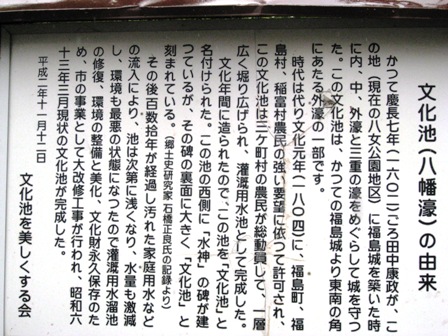 文化池（八幡濠）の由来
かつて慶長七年（一六〇二）ごろ田中康政が、こ
の地（現在の八女公園地区）に福島城を築いた時
に内、中、外濠と三重の濠をめぐらして城を守っ
た。この文化池は、かつての福島城より東南の角
にあたる外濠の一部です。
時代は代り文化元年（一八〇四）に、福島町、福
島村、稲富村農民の強い要望に依つて許可され、
この文化池は三ケ町村の農民が総動員して、一層
広く堀り広げられ、灌漑用水池として完成した。
文化年間に造られたので、この池を「文化池」と
名付けられた。この池の西側に「水神」の碑が建
つているが、その碑の裏面に大きく「文化池」と
刻まれている。（郷土史研究家 石橋正良氏の記録より）
その後百数拾年が経過し汚れた家庭用水など
の流入により、池は次第に浅くなり、水量も激減
し、環境も最悪の状態になつたので灌漑用水溜池
の修復、環境の整備と美化、文化財永久保存のた
め、市の事業として大改修工事が行われ、昭和六
十三年三月現状の文化池が完成した。
平成二年十一月十二日
文化池を美しくする会